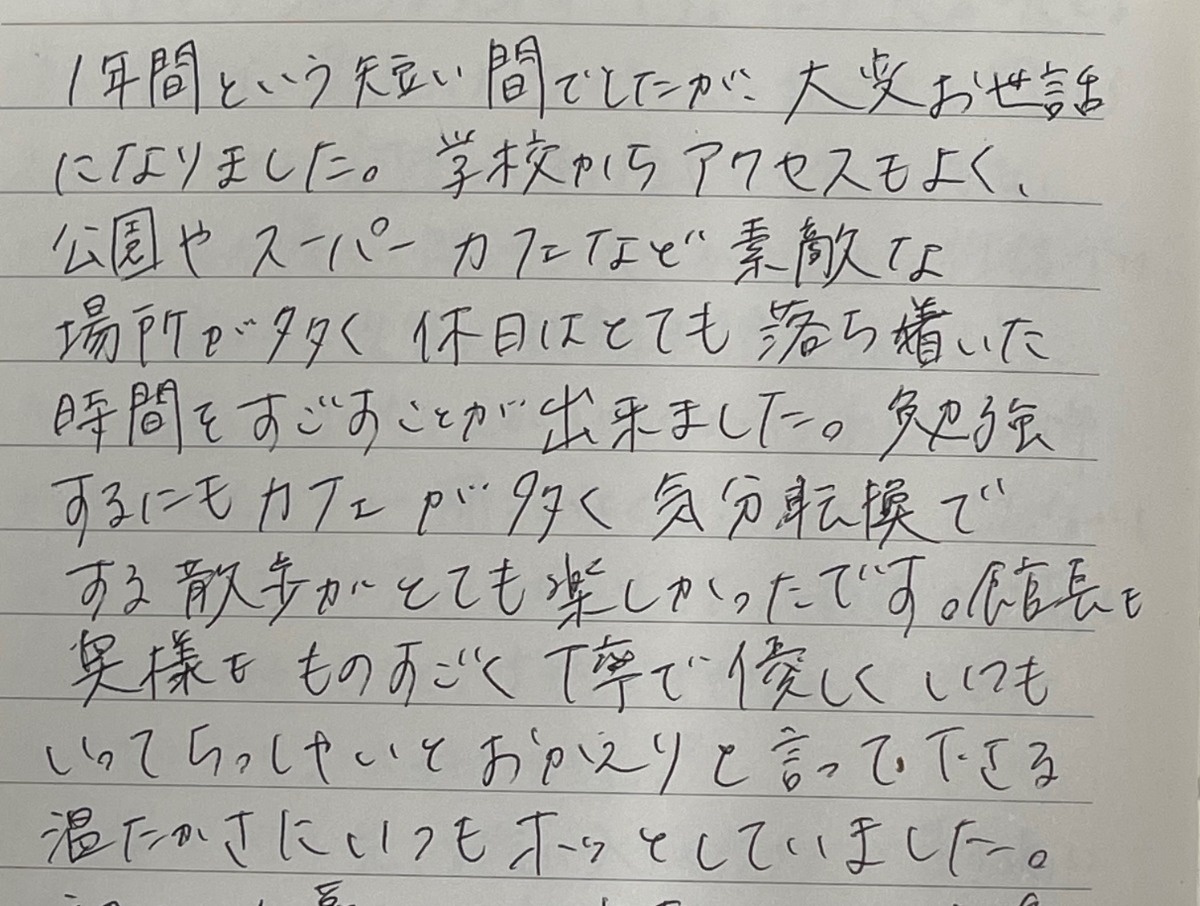 1年間という短い間でしたが、大変お世話
になりました。学校からアクセスもよく、
公園やスーパーカフェなど素敵な
場所が多く休日はとても落ち着いた
時間をすごすことが出来ました。勉強
するにもカフェが多く気分転換で
する散歩がとても楽しかったです。館長も
奥様もものすごく丁寧で優しくいつも
いってらっしゃいとおかえりと言って下さる
温たかさにいつもホッとしていました。